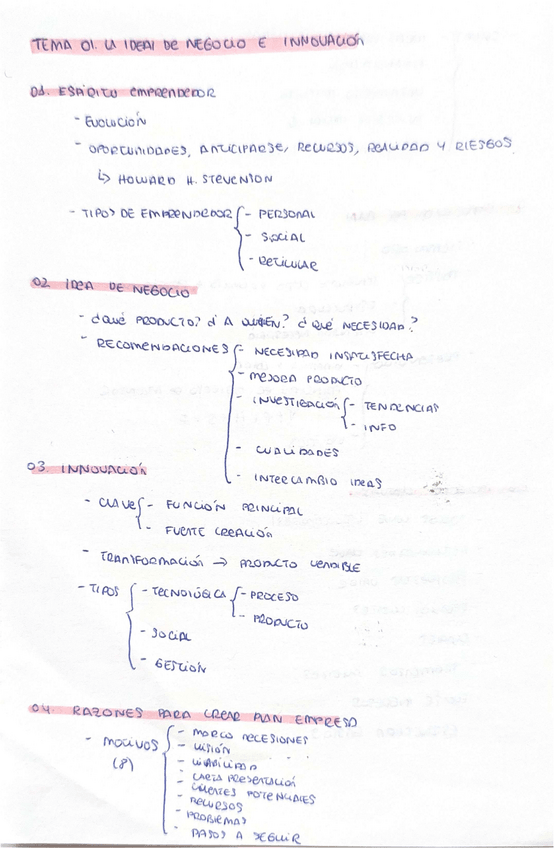 TEMA 01. LA IDEA DE NEGOCIO E INNOVACIÓN
01. ESPÍRITU EMPRENDEDOR
- EVOLUCIÓN
- OPORTUNIDADES, ANTICIPARSE, RECURSOS, REALIDAD Y RIESGOS
↳ HOWARD H. STEVENSON
- TIPOS DE EMPRENDEDOR - PERSONAL
- SOCIAL
- RETICULAR
02 IDEA DE NEGOCIO
- ¿QUÉ PRODUCTO? ¿A QUIÉN? ¿QUÉ NECESIDAD?
- RECOMENDACIONES - NECESIDAD INSATISFECHA
- MEJORA PRODUCTO
- INVESTIGACIÓN - TENDENCIAS
- INFO
- CUALIDADES
- INTERCAMBIO IDEAS
03. INNOVACIÓN
- CLAVE - FUNCIÓN PRINCIPAL
- FUENTE CREACIÓN
- TRANSFORMACIÓN → PRODUCTO VENDIBLE
- TIPOS - TECNOLÓGICA - PROCESO
- PRODUCTO
- SOCIAL
- GESTIÓN
04. RAZONES PARA CREAR PLAN EMPRESA
- MOTIVOS - MARCO RECESIONES
(8) - VISIÓN
- VIABILIDAD
- CARTA PRESENTACIÓN
- CLIENTES POTENCIALES
- RECURSOS
- PROBLEMAS
- PASOS A SEGUIR